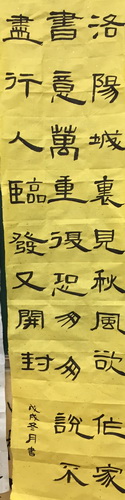 洛陽城裏見秋風欲作家
書意萬重復恐匆匆說不
盡行人臨發又開封
戊戌冬月書